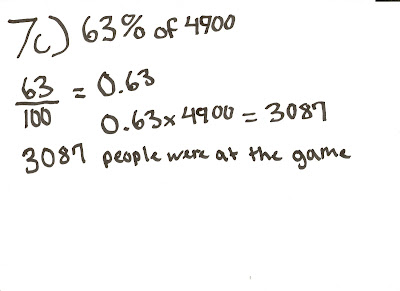 7c) 63% of 4900
63/100 = 0.63
0.63 x 4900 = 3087
3087 people were at the game